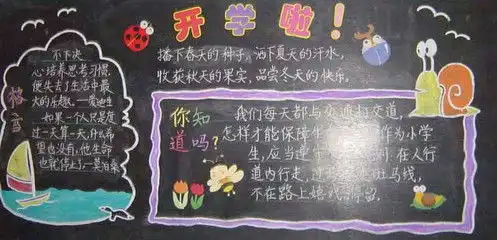 开学啦!
播下春天的种子,洒下夏天的汗水,
收获秋天的果实,品尝冬天的快乐。
格言
不下决
心培养思考习惯,
便失去了生活中最
大的乐趣。—爱迪生
如果一个人只是度
过一天算一天,什么希
望也没有,他生命
也就停止了—莫泊桑
你知道吗?
我们每天都与交通打交道,
怎样才能保障生 作为小学
生,应当遵守 在人行
道内行走,过 斑马线,
不在路上嬉戏 停留。